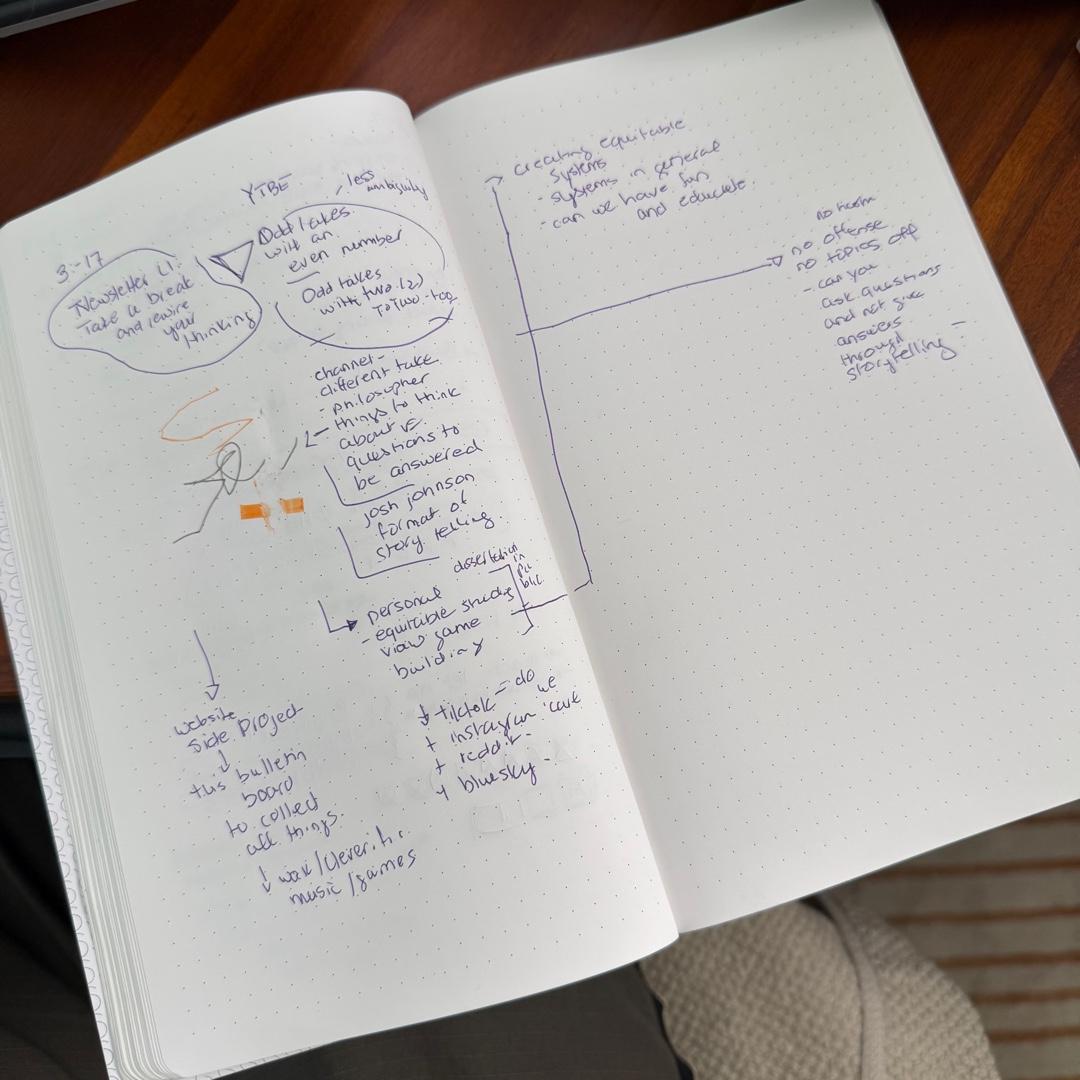 3.-17
Newsletter LI:
Take a break
and rewire
your
thinking
YTBE
, less
ambiguity
Odd takes
with an
even number
Odd takes
with two (2)
To Two-too
channel-
different take
- philosopher
things to think
about
questions to
be answered
josh johnson
format of
story telling.
dissertation
in
pu
blic.
personal
- equitable studies
view game
building
website
side project
this bulletin
board
to collect
all things.
music / games
+ tiktok - do
we
+ instagram care
+ reddit.
+ bluesky -
creating equitable
systems
- systems in general
- can we have fun
and educate.
no harm
no offense
no topics off
- can you
ask questions
and not give
answers
through
storytelling -